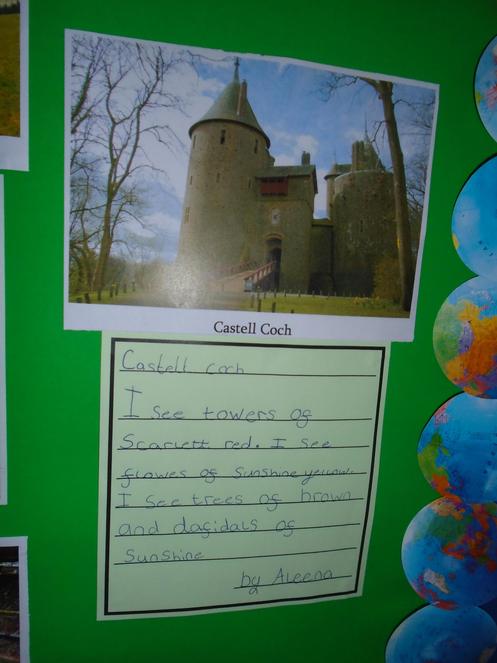 Castell Coch
Castell coch
I see towers of
Scarlett red. I see
flowes of Sunshine yellow.
I see trees of brown
and dafidals of
Sunshine
by Aleena